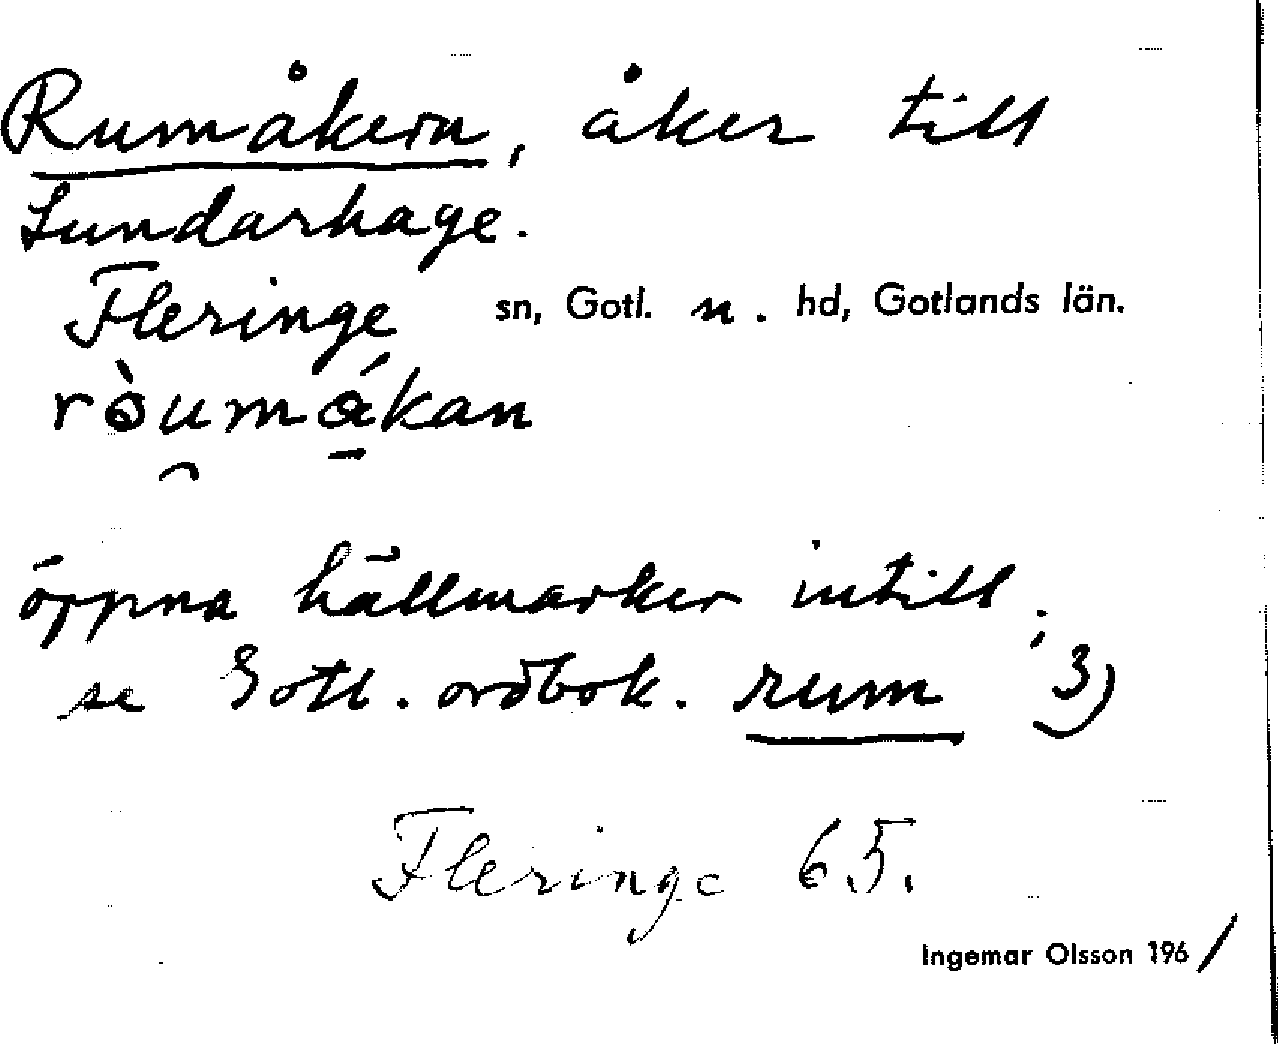 Rumåkern, åker till
Lundarhage.
Fleringe sn, Gotl. n. hd, Gotlands län.
rə̀u̯má̱kan
öppna hällmarker intill;
se Gotl. ordbok. rum 3)
Fleringe 65.
Ingemar Olsson 1961